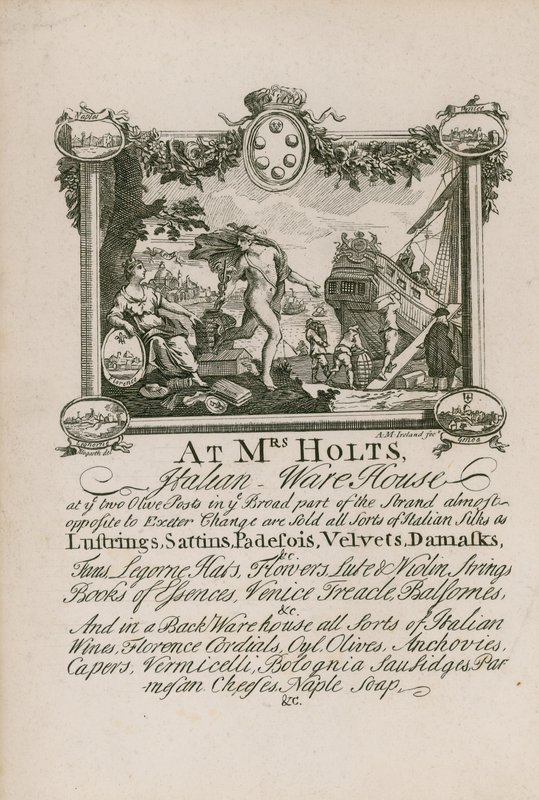 Naples
Venice
Florence
Leghorne
Genoa
Hogarth del
A. M. Ireland fec.t
AT MRS HOLTS,
Italian Ware House
at ye two Olive Posts in ye Broad part of the Strand almost
opposite to Exeter Change are sold all Sorts of Italian Silks as
Luſtrings, Sattins, Padeſois, Velvets, Damaſks,
&c
Fans, Legorne Hats, Flowers, Lute & Violin Strings
Books of Eſsences, Venice Treacle, Balſomes,
&c.
And in a Back Warehouse all Sorts of Italian
Wines, Florence Cordials, Oyl, Olives, Anchovies,
Capers, Vermicelli, Bolognia Sauſidges, Par-
meſan Cheeſes, Naple Soap,
&c.